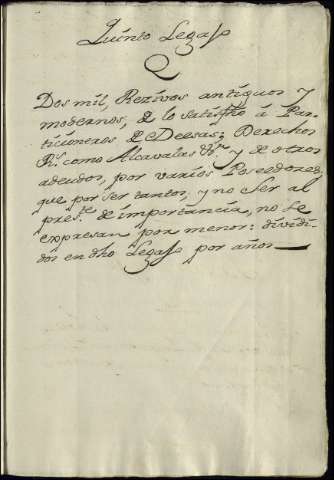 Quinto Legajo
Q
Dos mil, Rezivos antiguos y
modernos, de lo satisfho á Par-
ticioneros de Deesas; Derechos
Rs. como Alcavalas &a. y de otros
adeudos, por varios Poseedores,
que por ser tantos, y no Ser al
preste. de importancia, no se
expresan por menor: dividi-
dos en dho Legajo por años